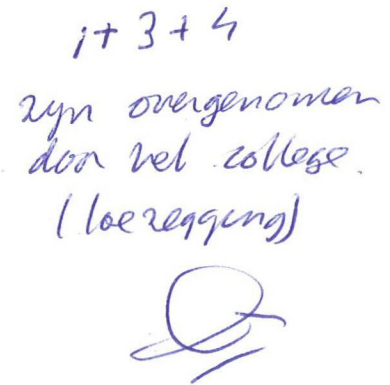 1+3+4
zijn overgenomen
door het college.
(toezegging)